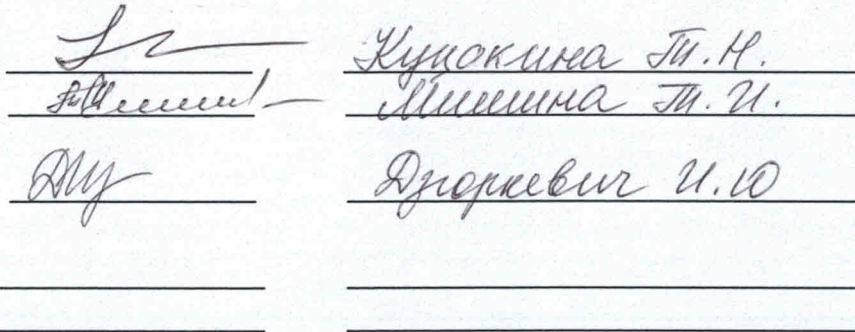 Купокина Т.Н.
Мишина Т.И.
Дзюркевич И.Ю